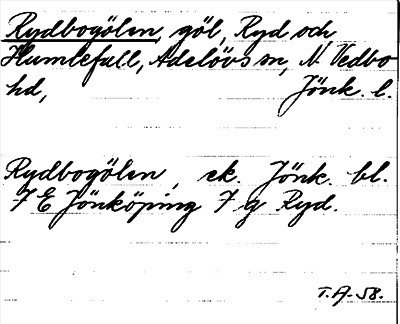 Rydbogölen, göl, Ryd och
Humlefall, Adelövs sn, N. Vedbo
hd, Jönk. l.
Rydbogölen, ek. Jönk. bl.
7 E Jönköping 7 g Ryd.
T.A-58.